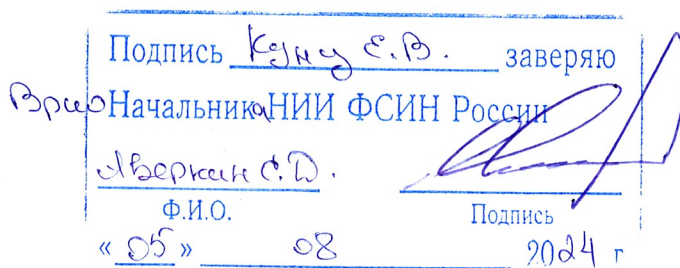 Подпись Кунц Е.В. заверяю
Врио Начальника НИИ ФСИН России
Аверкин С.D.
Ф.И.О. Подпись
« 05 » 08 2024 г